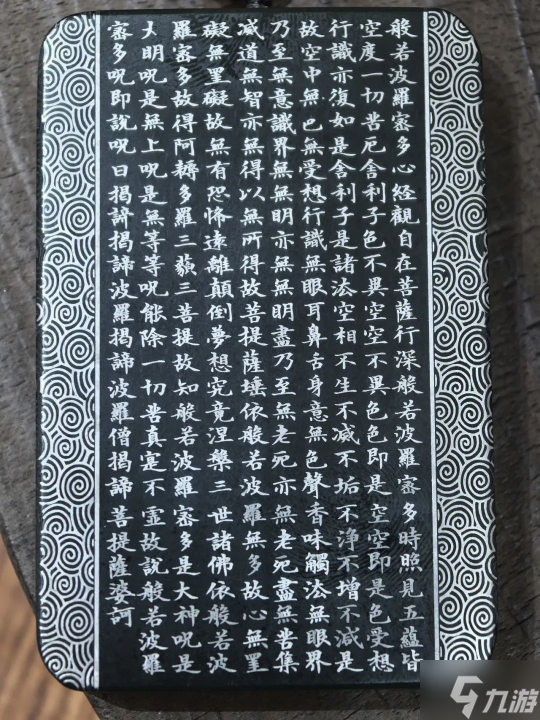 般若波羅蜜多心經觀自在菩薩行深般若波羅蜜多時照見五蘊皆
空度一切苦厄舍利子色不異空空不異色色即是空空即是色受想
行識亦復如是舍利子是諸法空相不生不滅不垢不淨不增不減是
故空中無色無受想行識無眼耳鼻舌身意無色聲香味觸法無眼界
乃至無意識界無無明亦無無明盡乃至無老死亦無老死盡無苦集
滅道無智亦無得以無所得故菩提薩埵依般若波羅無多故心無罣
礙無罣礙故無有恐怖遠離顛倒夢想究竟涅槃三世諸佛依般若波
羅蜜多故得阿耨多羅三藐三菩提故知般若波羅蜜多是大神呪是
大明呪是無上呪是無等等呪能除一切苦真寔不靈故說般若波羅
蜜多呪即說呪曰揭諦揭諦波羅揭諦波羅僧揭諦菩提薩婆訶
九游